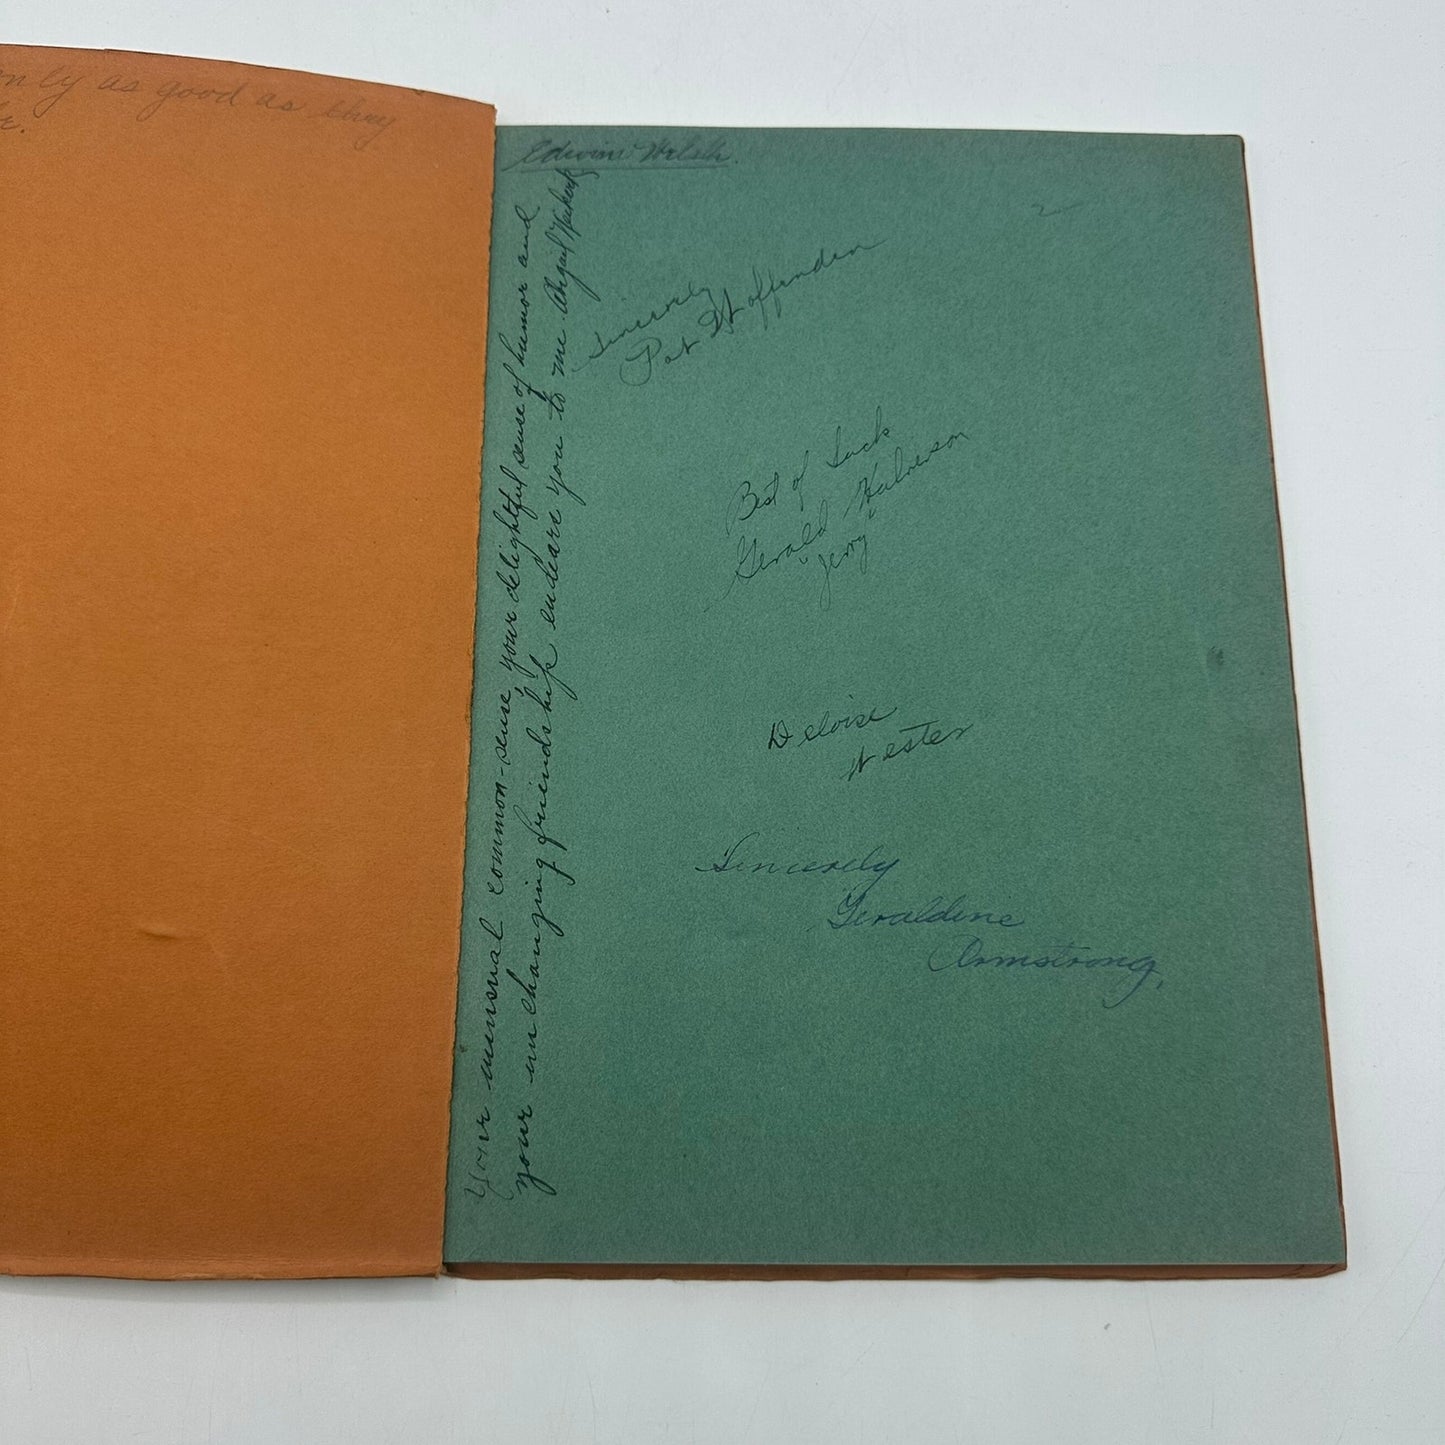 only as good as they
Edwin Welsh.
Your unusual common-sense, your delightful sense of humor and
your unchanging friendship endear you to me. Abigail
Sincerely
Pat Woffinden
Best of Luck
Gerald Halverson
"Jerry"
Deloise
Wester
Sincerely
Geraldine
Armstrong,